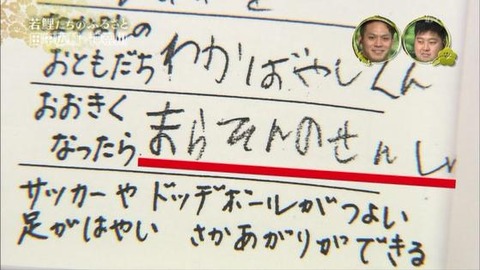 若鯉たちのふるさと
の
おともだち わかばやしくん
おおきく
なったら まらそんのせんし
サッカーや ドッヂボールがつよい
足がはやい さかあがりができる